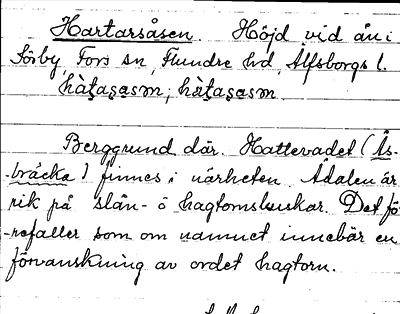 Hartarsåsen. Höjd vid ån i
Sörby, Fors sn, Flundre hd, Älfsborgs l.
hàt̯as̯a̯sm, hàt̯as̯a̯sm.
Berggrund där. Hattevadet (Ås-
bräcka) finnes i närheten. Ådalen är
rik på slån- o hagtornsbuskar. Det fö-
refaller som om namnet innebär en
förvanskning av ordet hagtorn.